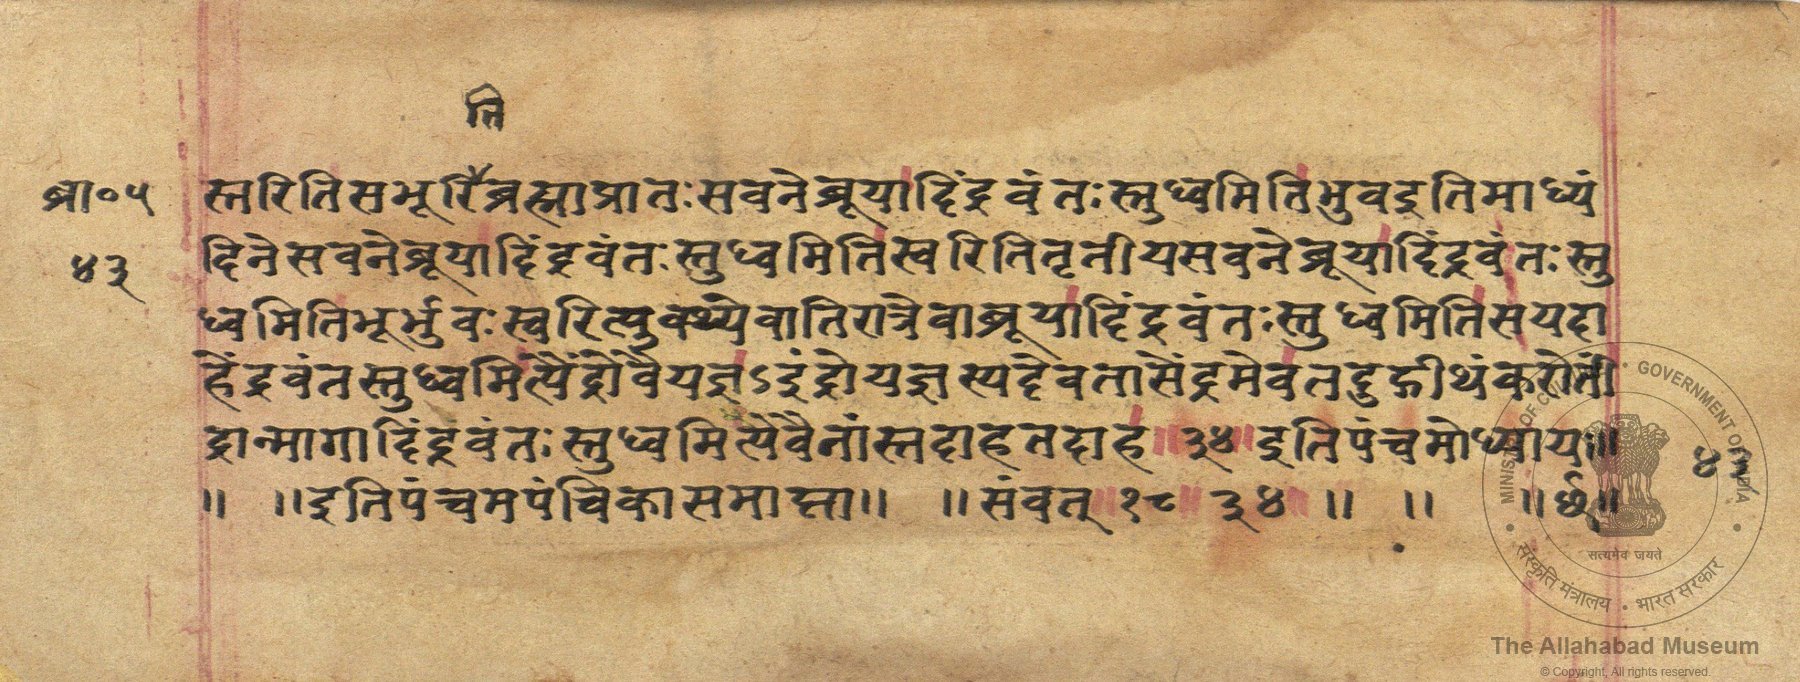 ति
ब्रा०५
४३
स्तरिति स भूरि ब्रह्मा प्रातः सवने ब्रूयादिंद्रवंतः स्तुध्वमिति भुव इति माध्यं
दिने सवने ब्रूयादिंद्रवंतः स्तुध्वमिति स्वरिति तृतीयसवने ब्रूयादिंद्रवंतः स्तु
ध्वमिति भूर्भुवः स्वरित्युक्थ्ये वातिरात्रे वा ब्रूयादिंद्रवंतः स्तुध्वमिति स यदा
हेंद्रवंत स्तुध्वमित्यैंद्रो वै यज्ञऽइंद्रो यज्ञस्य देवता सेंद्रमेव तदुद्गीथं करोतीं
द्रान्मागादिंद्रवंतः स्तुध्वमित्येवैनांस्तदाह तदाह ॥३४॥ इति पंचमोध्यायः॥
४३
॥ ॥इति पंचमपंचिका समाप्ता॥ ॥संवत्॥१८॥३४॥ ॥ ॥ ॥छ॥
MINISTRY OF CULTURE • GOVERNMENT OF INDIA
सत्यमेव जयते
संस्कृति मंत्रालय • भारत सरकार
The Allahabad Museum
© Copyright, All rights reserved.